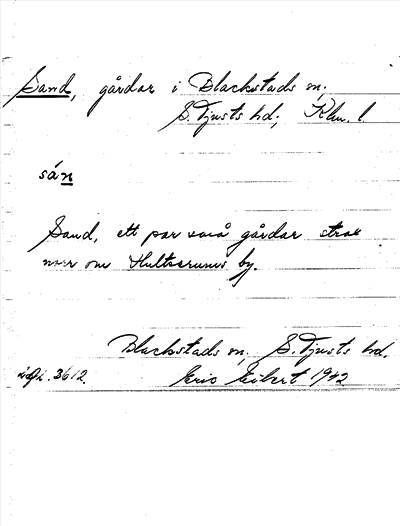 Sand, gårdar i Blackstads sn,
S. Tjusts hd, Klm. l.
sán
Sand, ett par små gårdar strax
norr om Hultserums by.
Blackstads sn, S. Tjusts hd.
3612. Eric Eibert 1942